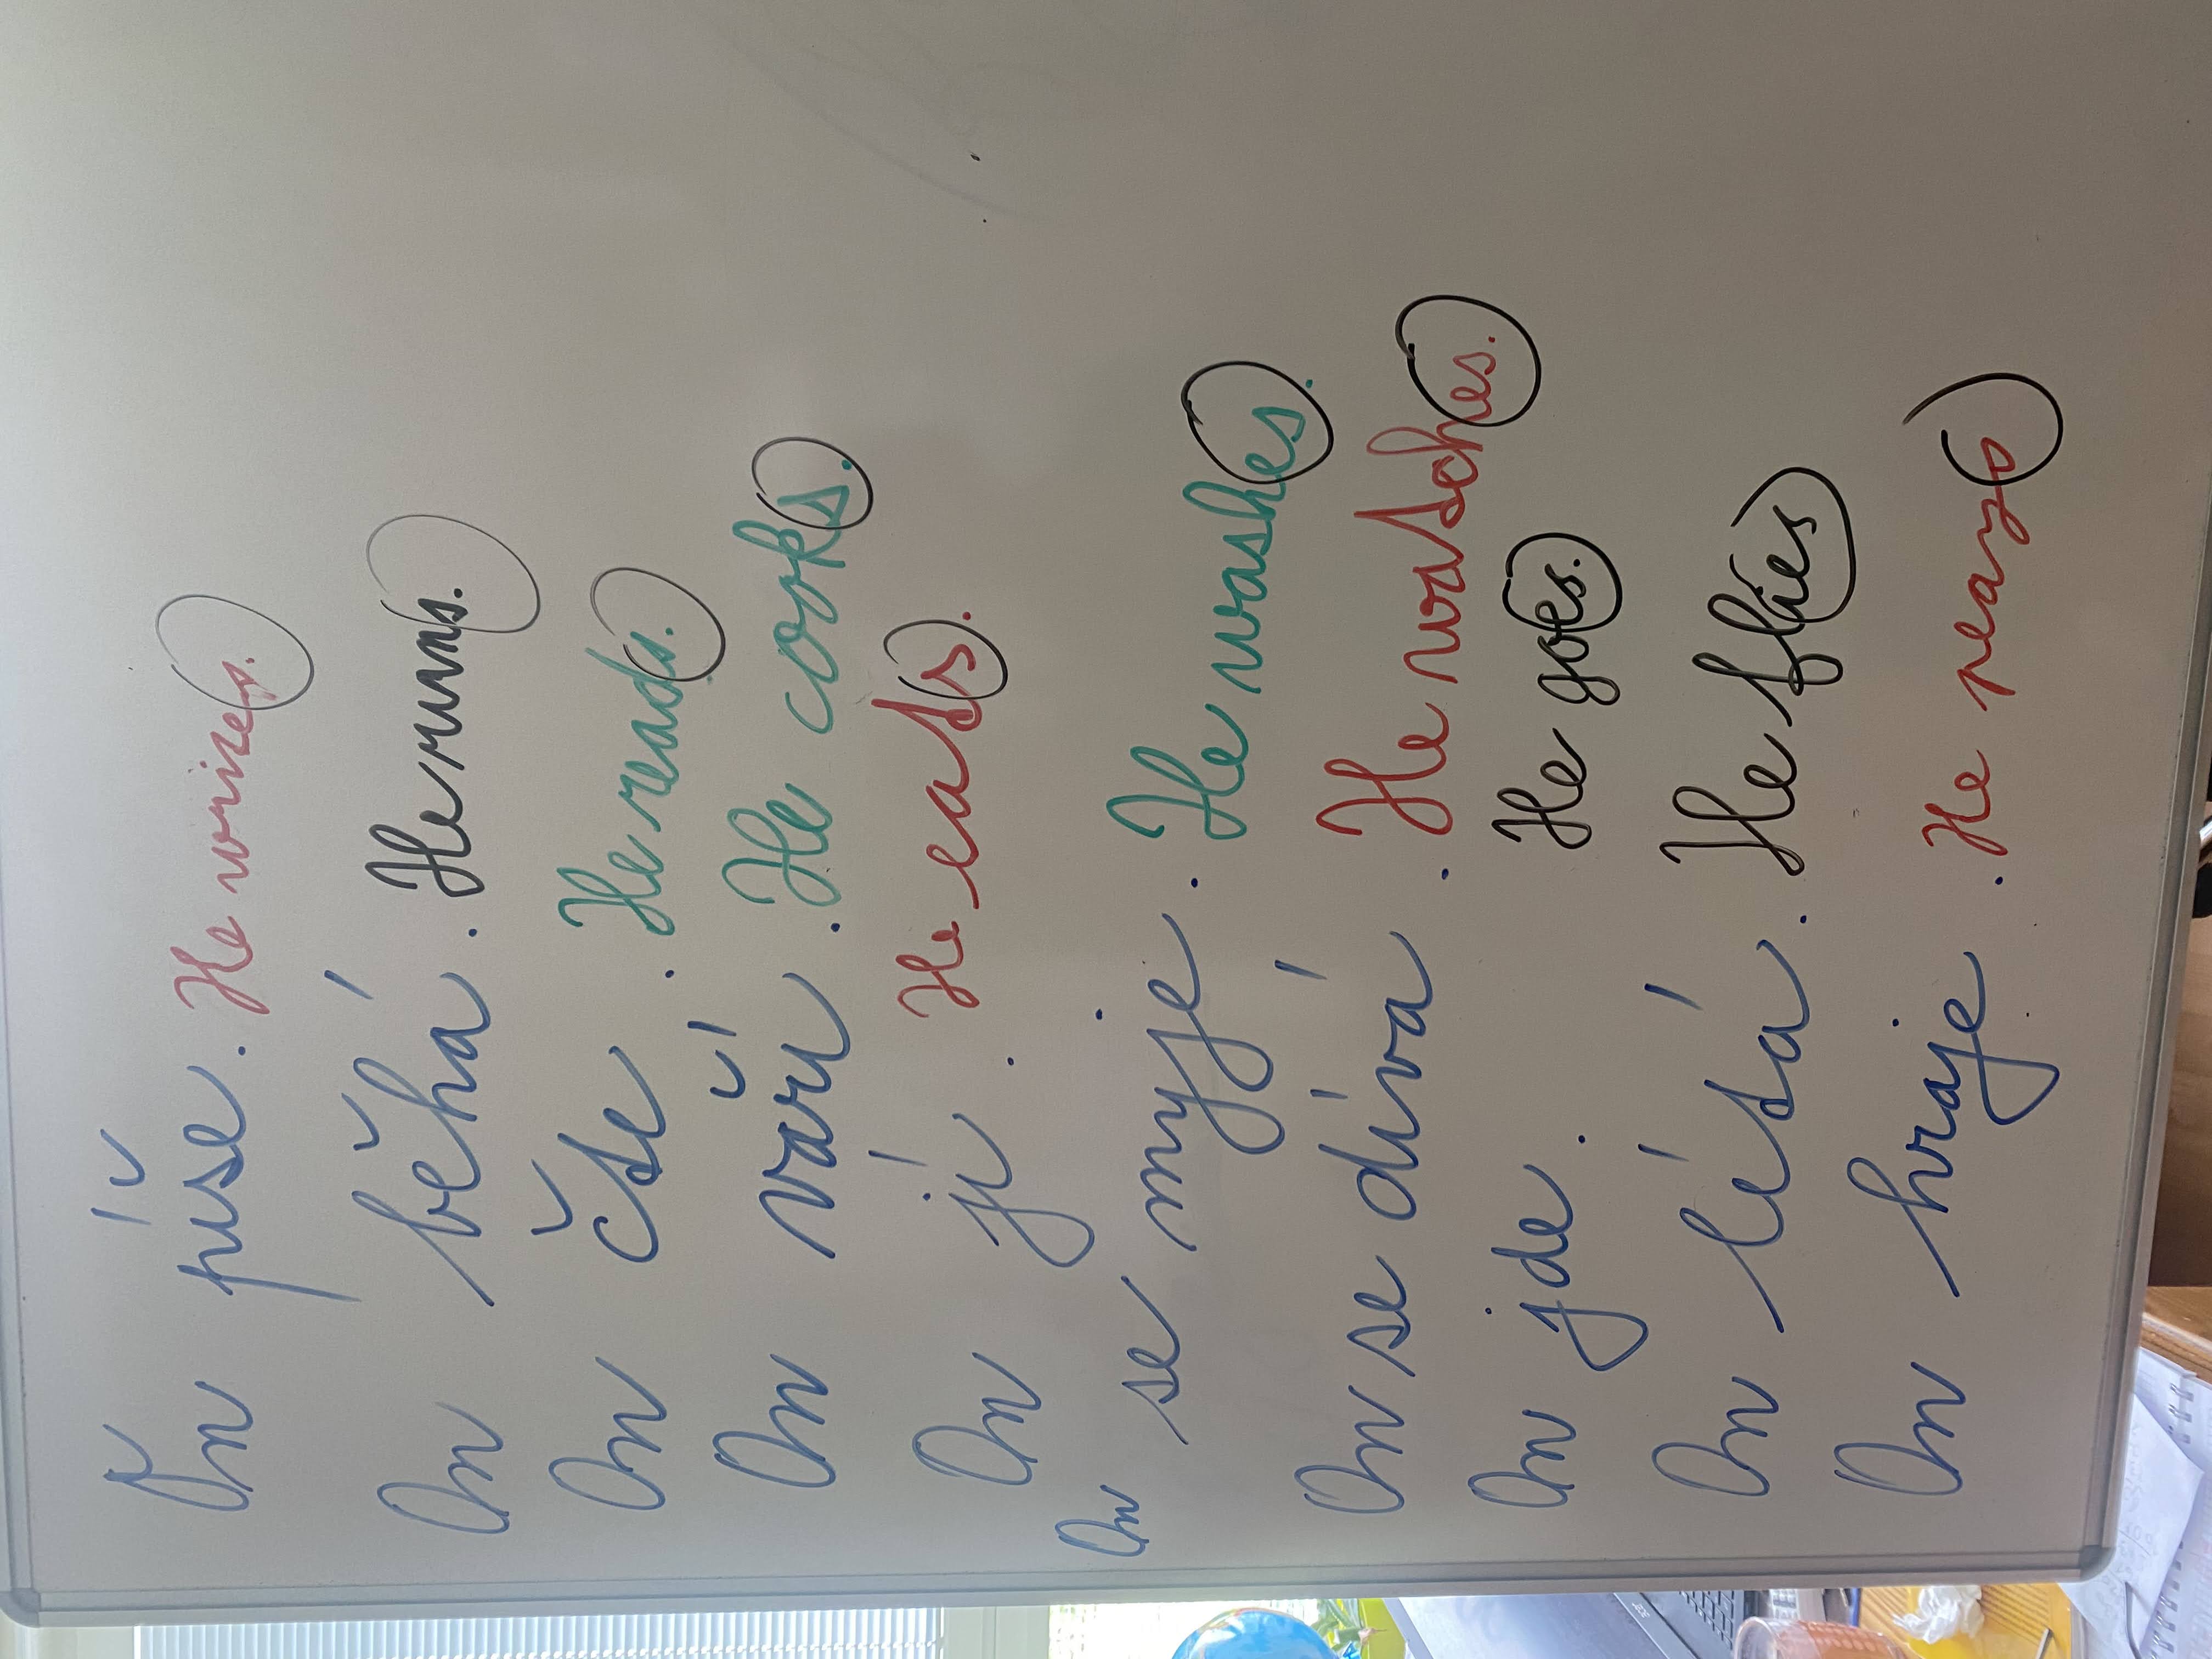 On píše. He writes.
On běhá. He runs.
On čte. He reads.
On vaří. He cooks.
On jí. He eats.
On se myje. He washes.
On se dívá. He watches.
On jde. He goes.
On létá. He flies
On hraje. He plays